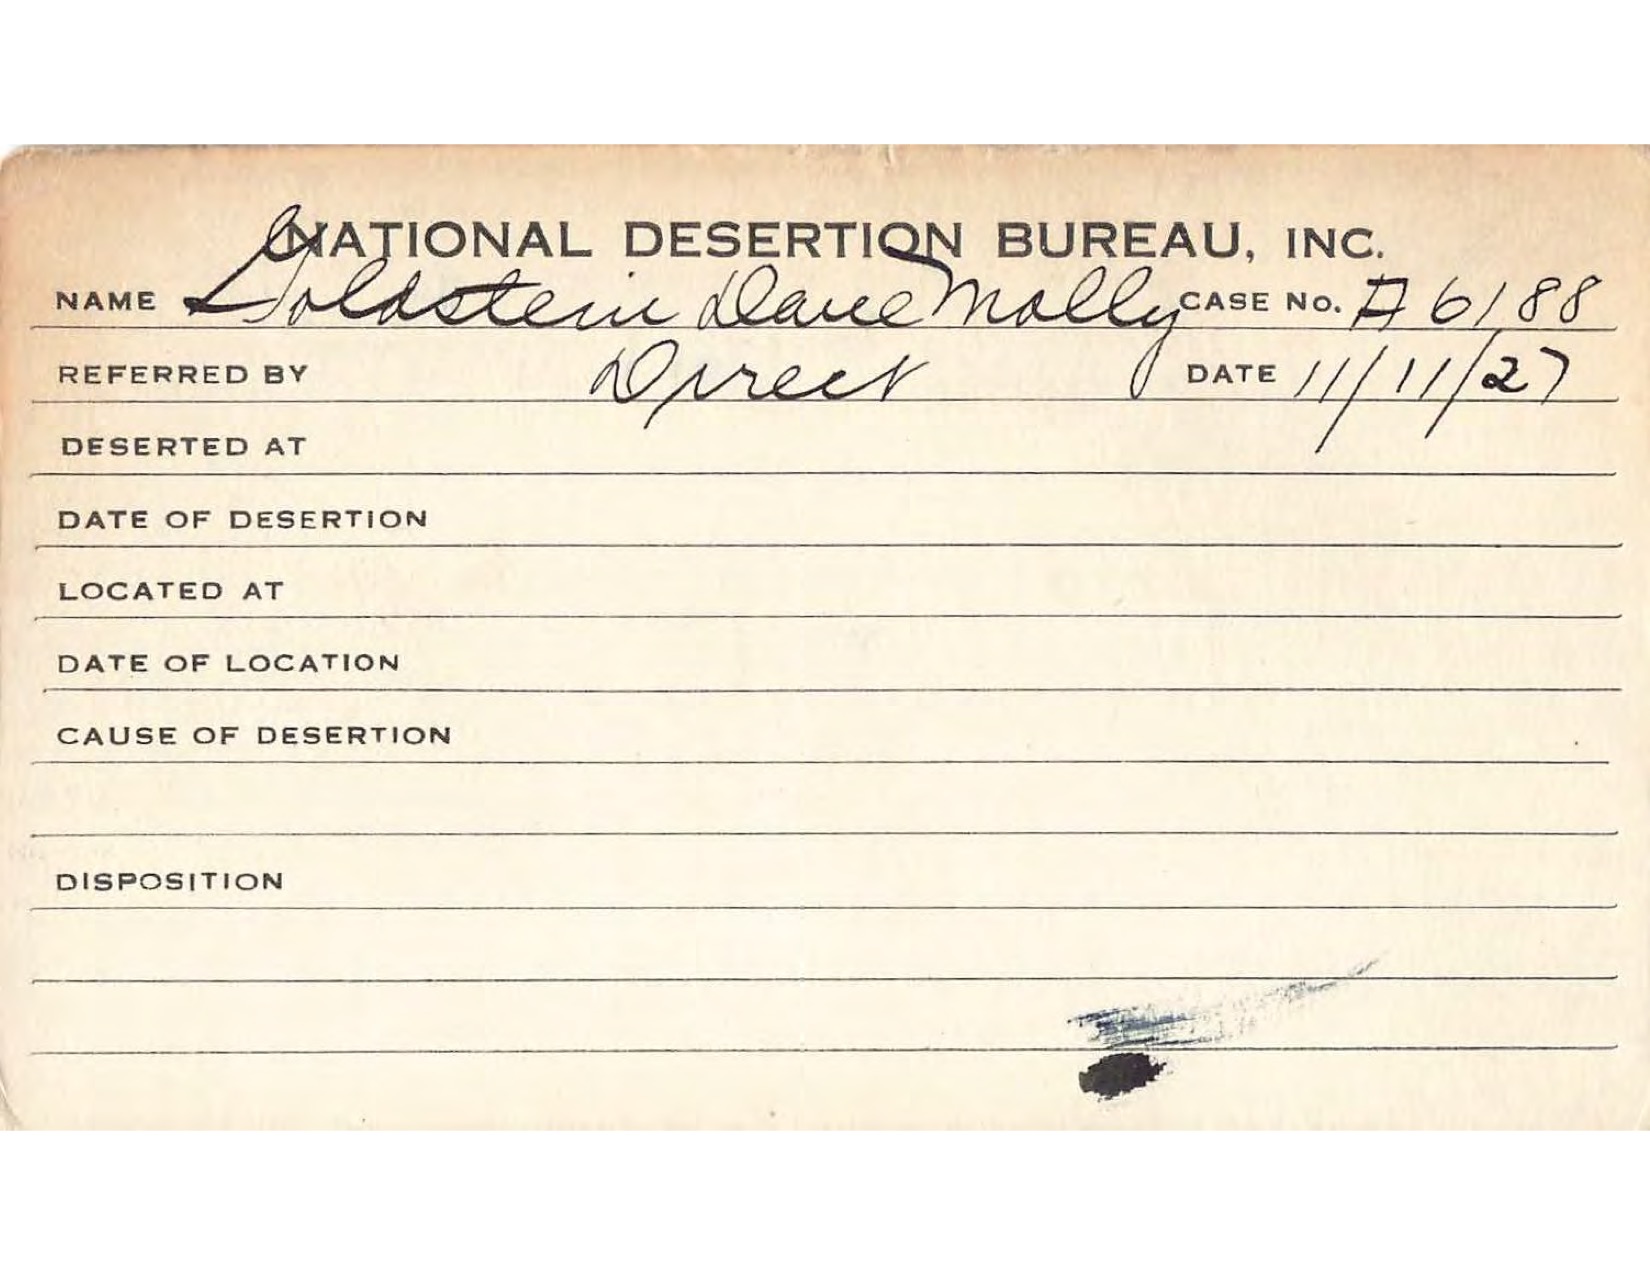 NATIONAL DESERTION BUREAU, INC.
NAME Goldstein Dave Molly CASE No. A6188
REFERRED BY Direct DATE 11/11/27
DESERTED AT
DATE OF DESERTION
LOCATED AT
DATE OF LOCATION
CAUSE OF DESERTION
DISPOSITION